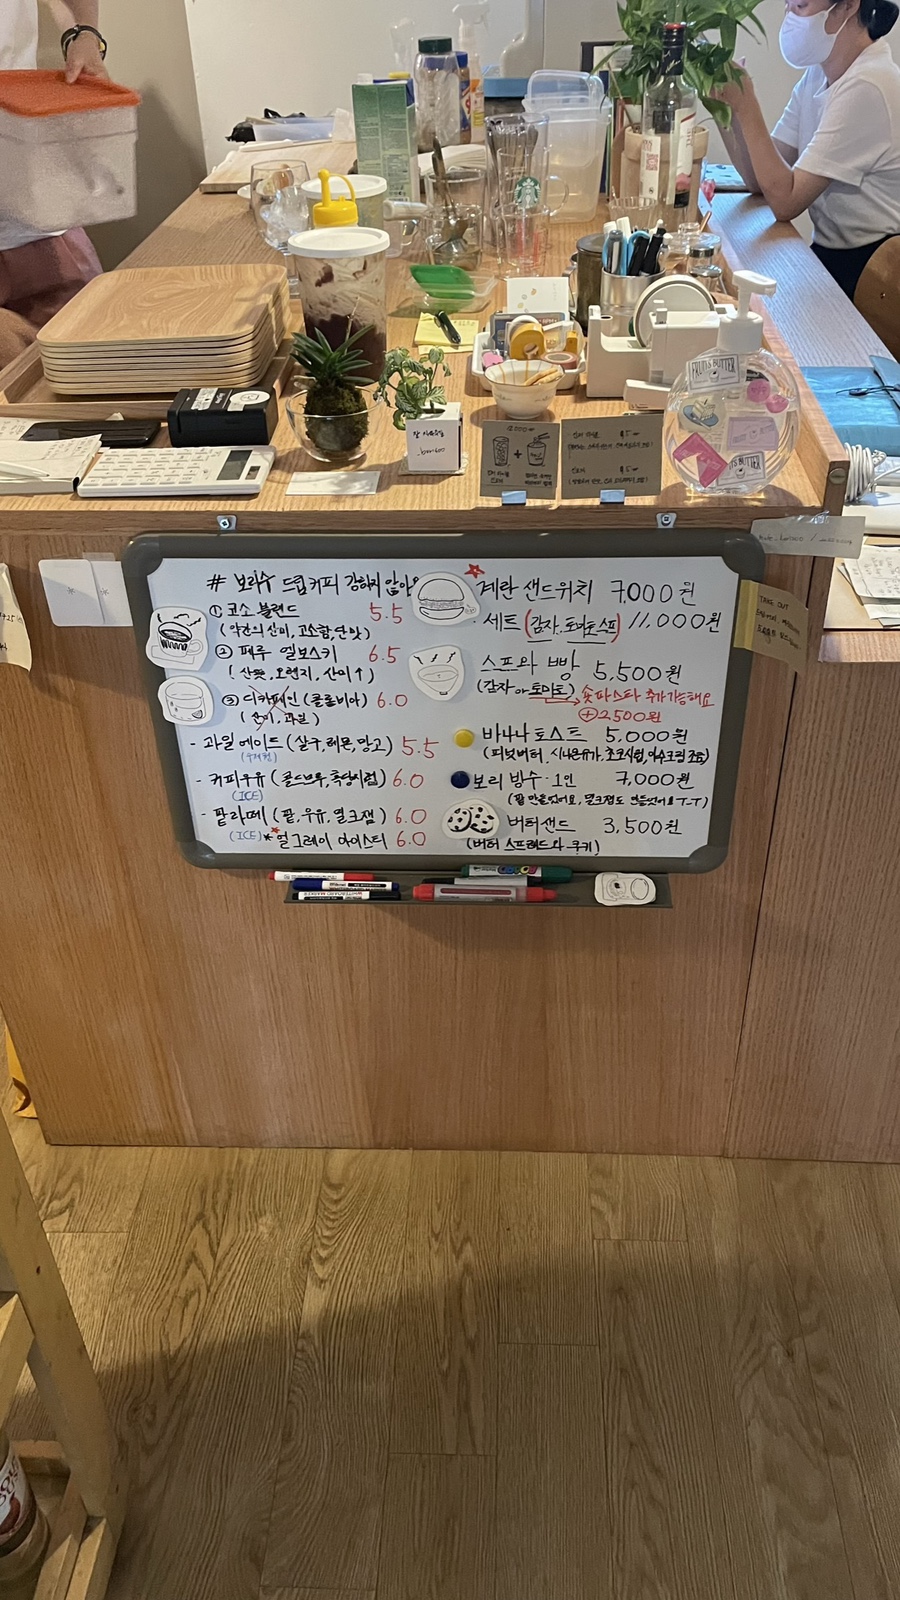 # 보리수 드립커피 강하지 않아요
① 코소 블렌드 5.5
(약간의 산미, 고소함, 단맛)
② 페루 엘보스키 6.5
(산뜻, 오렌지, 산미↑)
③ 디카페인 (콜롬비아) 6.0
(산미, 과일)
- 과일 에이드 (살구, 레몬, 망고) 5.5
(수제청)
- 커피우유 (콜드브루, 흑당시럽) 6.0
(ICE)
- 팥라떼 (팥, 우유, 밀크잼) 6.0
(ICE) * 얼그레이 아이스티 6.0
계란 샌드위치 7,000원
· 세트 (감자, 토마토스프) 11,000원
스프와 빵 5,500원
(감자 or 토마토) → 숏파스타 추가 가능해요
+ 2,500원
바나나 토스트 5,000원
(피넛버터, 시나몬슈가, 초코시럽, 아이스크림
보리 빙수 · 1인 7,000원
(팥 만들었어요, 밀크잼도 만들었어요 T.T)
버터샌드 3,500원
(버터 스프레드와 쿠키)
TAKE OUT
FRUITS BUTTER
ITS BUTTER
12,000